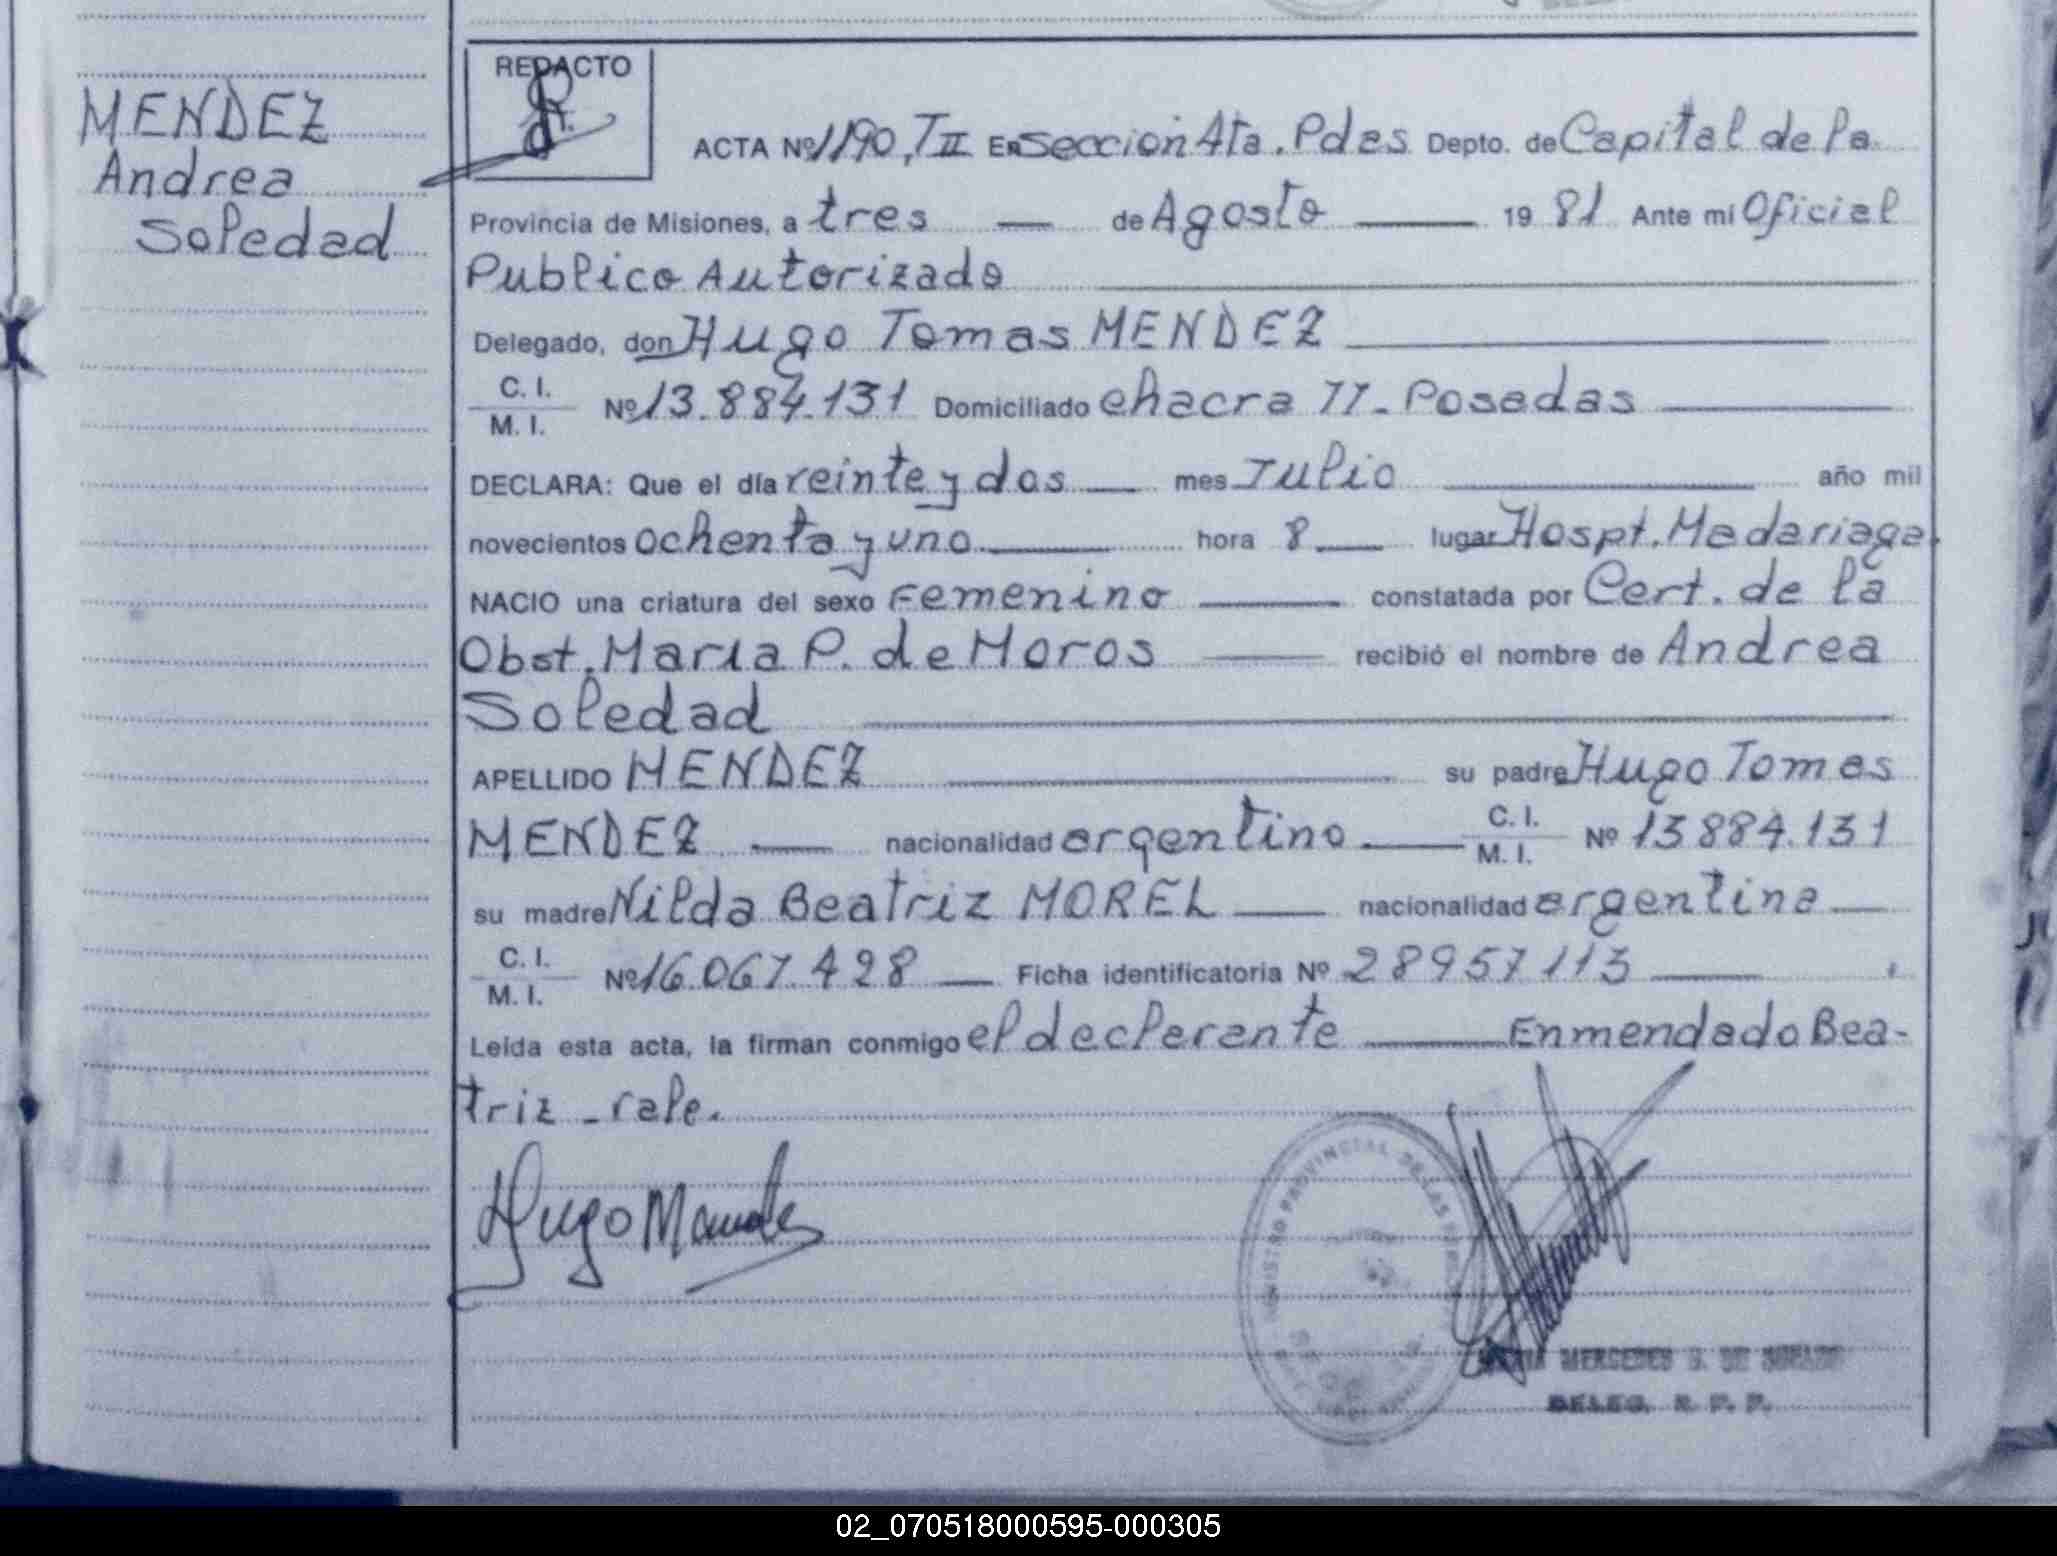 MENDEZ
Andrea
Soledad
REDACTO
ACTA Nº 1190, T II En Seccion 4ta. Pdas Depto. de Capital de la
Provincia de Misiones, a tres de Agosto 1981 Ante mi Oficial
Publico Autorizado
Delegado, don Hugo Tomas MENDEZ
C. I.
M. I. Nº 13.884.131 Domiciliado chacra 77 - Posadas
DECLARA: Que el día veinte y dos mes Julio año mil
novecientos ochenta y uno hora 8 lugar Hospt. Madariaga.
NACIO una criatura del sexo Femenino constatada por Cert. de la
Obst. Maria P. de Moros recibió el nombre de Andrea
Soledad
APELLIDO MENDEZ su padre Hugo Tomas
MENDEZ nacionalidad argentino C. I. M. I. Nº 13884.131
su madre Nilda Beatriz MOREL nacionalidad argentina
C. I.
M. I. Nº 16.067.428 Ficha identificatoria Nº 28957113
Leída esta acta, la firman conmigo el declarante Enmendado Bea-
triz - vale.
Hugo Mendez
REGISTRO PROVINCIAL DE LAS
MERCEDES
DELEG. R. P. P.
02_070518000595-000305